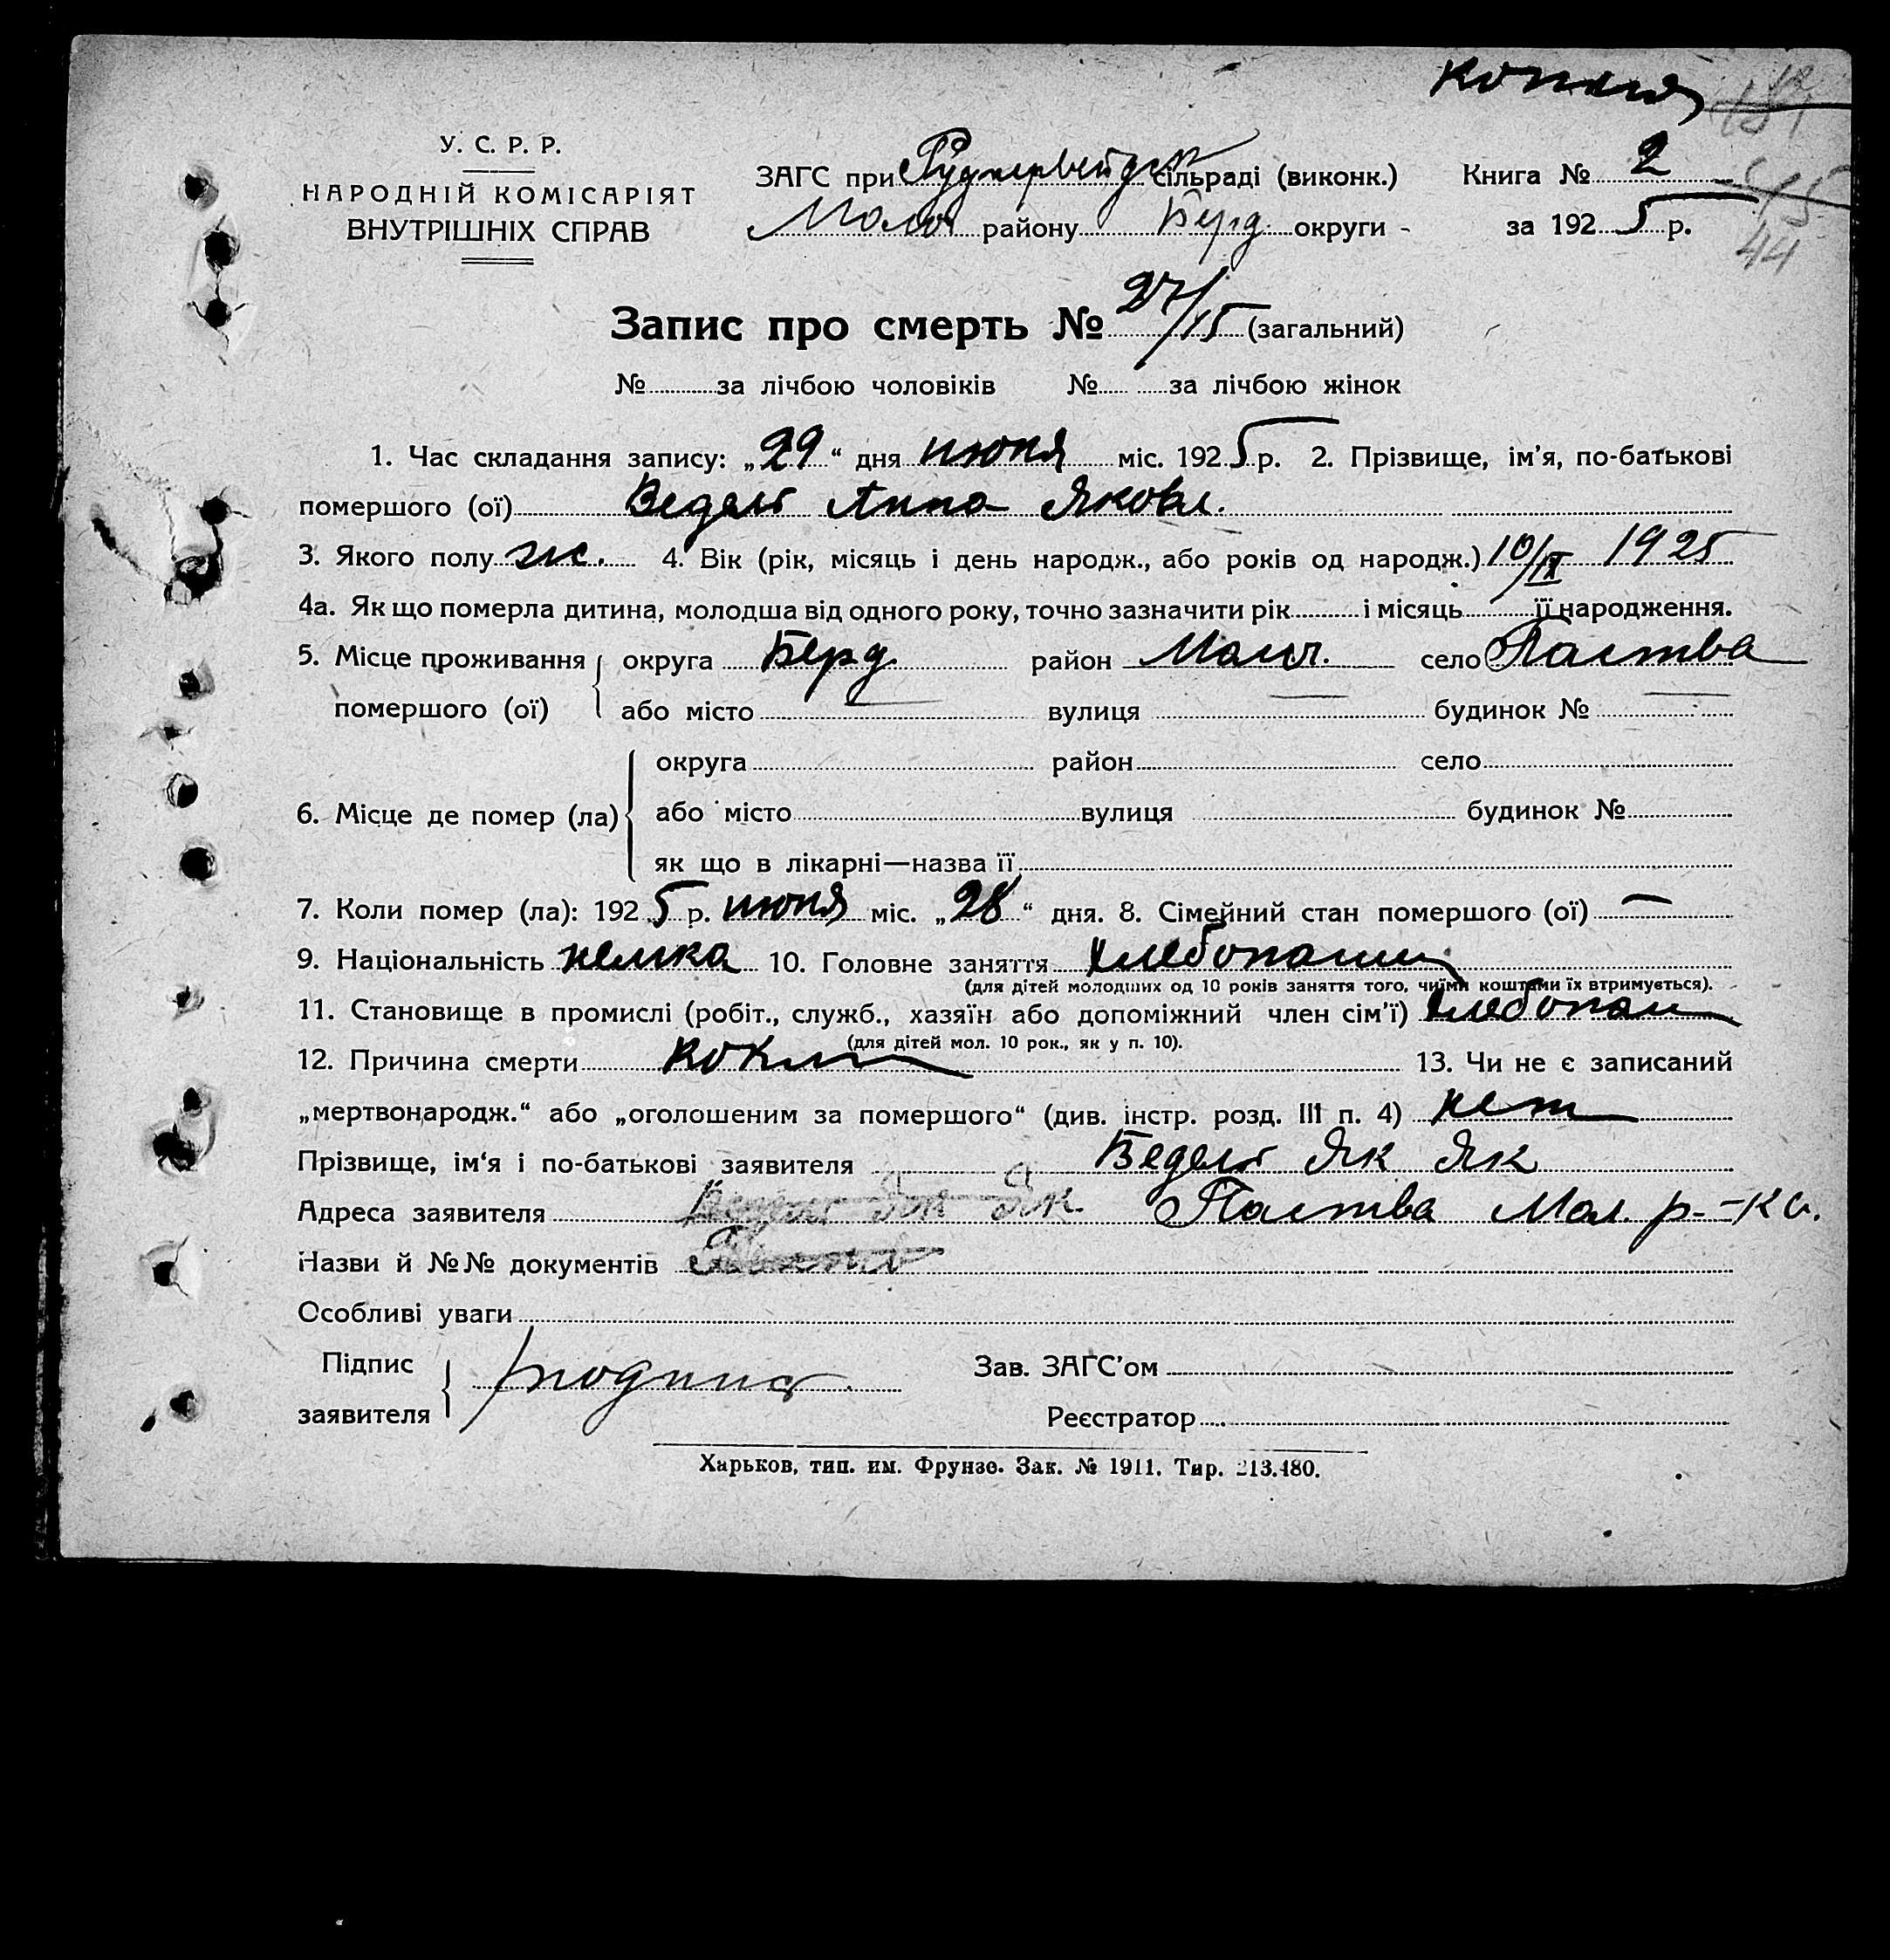 копия
У. С. Р. Р.
НАРОДНІЙ КОМІСАРІЯТ
ВНУТРІШНІХ СПРАВ
ЗАГС при сільраді (виконк.) Книга № 2
Молоч району Берд. округи - за 1925 р.
44
Запис про смерть № 27/15 (загальний)
№ за лічбою чоловіків № за лічбою жінок
1. Час складання запису: „29“ дня июня міс. 1925 р. 2. Прізвище, ім'я, по-батькові
помершого (ої) Ведель Анна Яковл.
3. Якого полу ж. 4. Вік (рік, місяць і день народж., або років од народж.) 10/IX 1925
4а. Як що померла дитина, молодша від одного року, точно зазначити рік і місяць її народження.
5. Місце проживання округа Берд район Молч. село Паства
помершого (ої) або місто вулиця будинок №
округа район село
6. Місце де помер (ла) або місто вулиця будинок №
як що в лікарні—назва її
7. Коли помер (ла): 1925 р. июня міс. „28“ дня. 8. Сімейний стан помершого (ої) —
9. Національність немка 10. Головне заняття хлебопашец
(для дітей молодших од 10 років заняття того, чиїми коштами їх втримується).
11. Становище в промислі (робіт., служб., хазяїн або допоміжний член сім'ї) хлебопаш
(для дітей мол. 10 рок., як у п. 10).
12. Причина смерти коклюш 13. Чи не є записаний
„мертвонародж.“ або „оголошеним за помершого“ (див. інстр. розд. III п. 4) нет
Прізвище, ім'я і по-батькові заявителя Ведель Як Як
Адреса заявителя Паства Мол. р-ка.
Назви й №№ документів
Особливі уваги
Підпис заявителя подпись Зав. ЗАГС'ом
Реєстратор
Харьков, тип. им. Фрунзе. Зак. № 1911. Тир. 213.480.